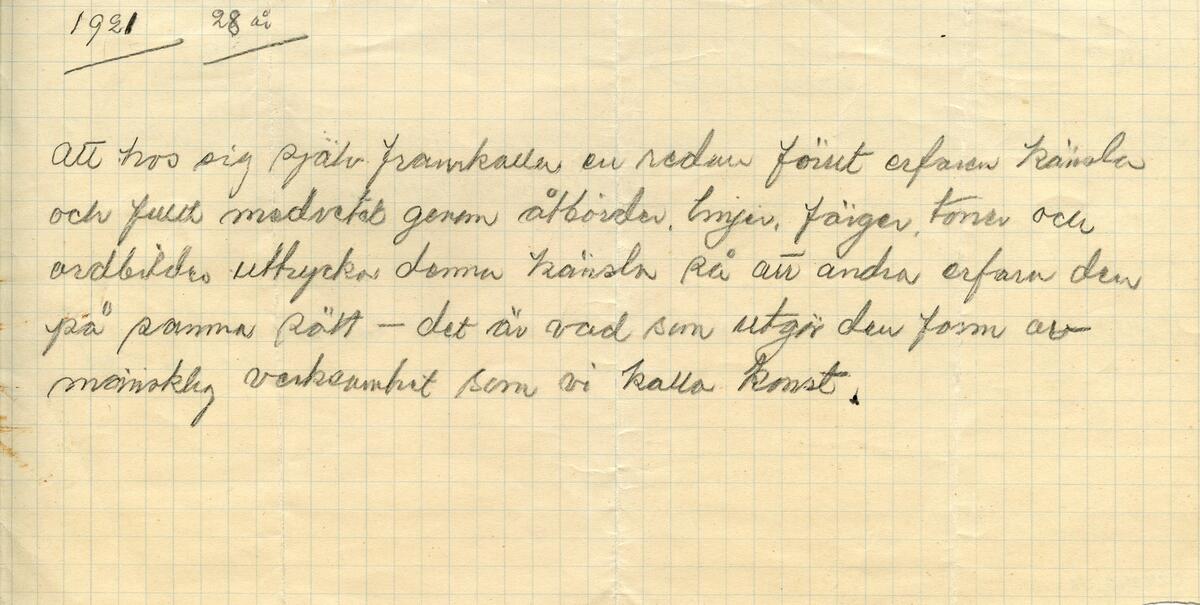 1921 28 år
Att hos sig själv framkalla en redan förut erfaren känsla
och fullt medvetet genom åtbörder, linjer, färger, toner och
ordbilder uttrycka denna känsla så att andra erfara den
på samma sätt – det är vad som utgör den form av
mänsklig verksamhet som vi kalla konst.